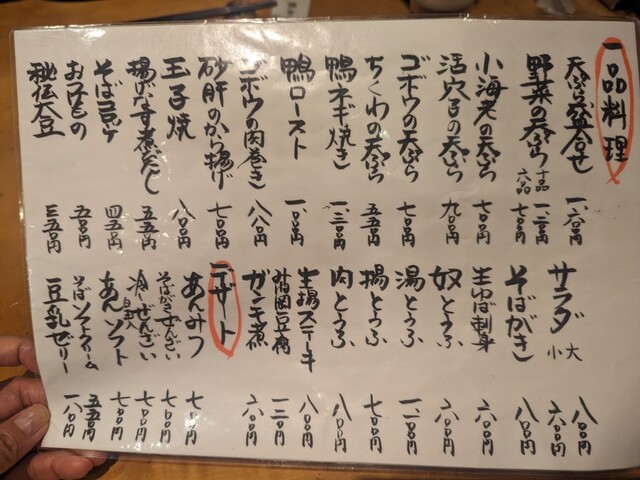 一品料理
天ぷら盛合せ 一、六〇〇円
野菜の天ぷら 十品 一、二〇〇円
六品 七〇〇円
小海老の天ぷら 七〇〇円
活穴子の天ぷら 九〇〇円
ゴボウの天ぷら 七〇〇円
ちくわの天ぷら 五五〇円
鴨ネギ焼き 一、三〇〇円
鴨ロースト 一、一〇〇円
ゴボウの肉巻き 八八〇円
砂肝のから揚げ 七〇〇円
玉子焼 八〇〇円
揚げなす煮びたし 五五〇円
そば豆腐 四五〇円
おつけもの 五〇〇円
秘伝大豆 三五〇円
サラダ 大 八〇〇円
小 六〇〇円
そばがき 八〇〇円
生ゆば刺身 六〇〇円
奴とうふ 六〇〇円
湯とうふ 一、一〇〇円
揚とうふ 七〇〇円
肉とうふ 八〇〇円
生揚ステーキ 八〇〇円
豆腐 一、二〇〇円
ガンモ煮 六〇〇円
デザート
あんみつ 七〇〇円
そばがきぜんざい 七〇〇円
冷しぜんざい 白玉入 七〇〇円
あんソフト 七〇〇円
そばソフトクリーム 五五〇円
豆乳ゼリー 一八〇円